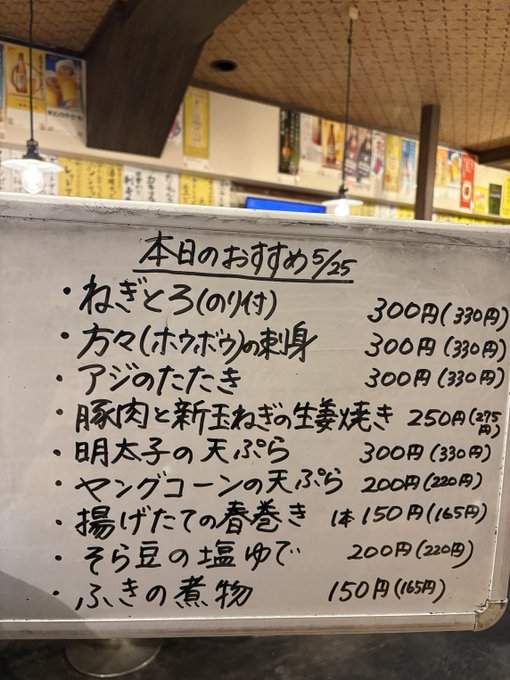 本日のおすすめ5/25
・ねぎとろ(のり付) 300円(330円)
・方々(ホウボウ)の刺身 300円(330円)
・アジのたたき 300円(330円)
・豚肉と新玉ねぎの生姜焼き 250円(275円)
・明太子の天ぷら 300円(330円)
・ヤングコーンの天ぷら 200円(220円)
・揚げたての春巻き 1本150円(165円)
・そら豆の塩ゆで 200円(220円)
・ふきの煮物 150円(165円)